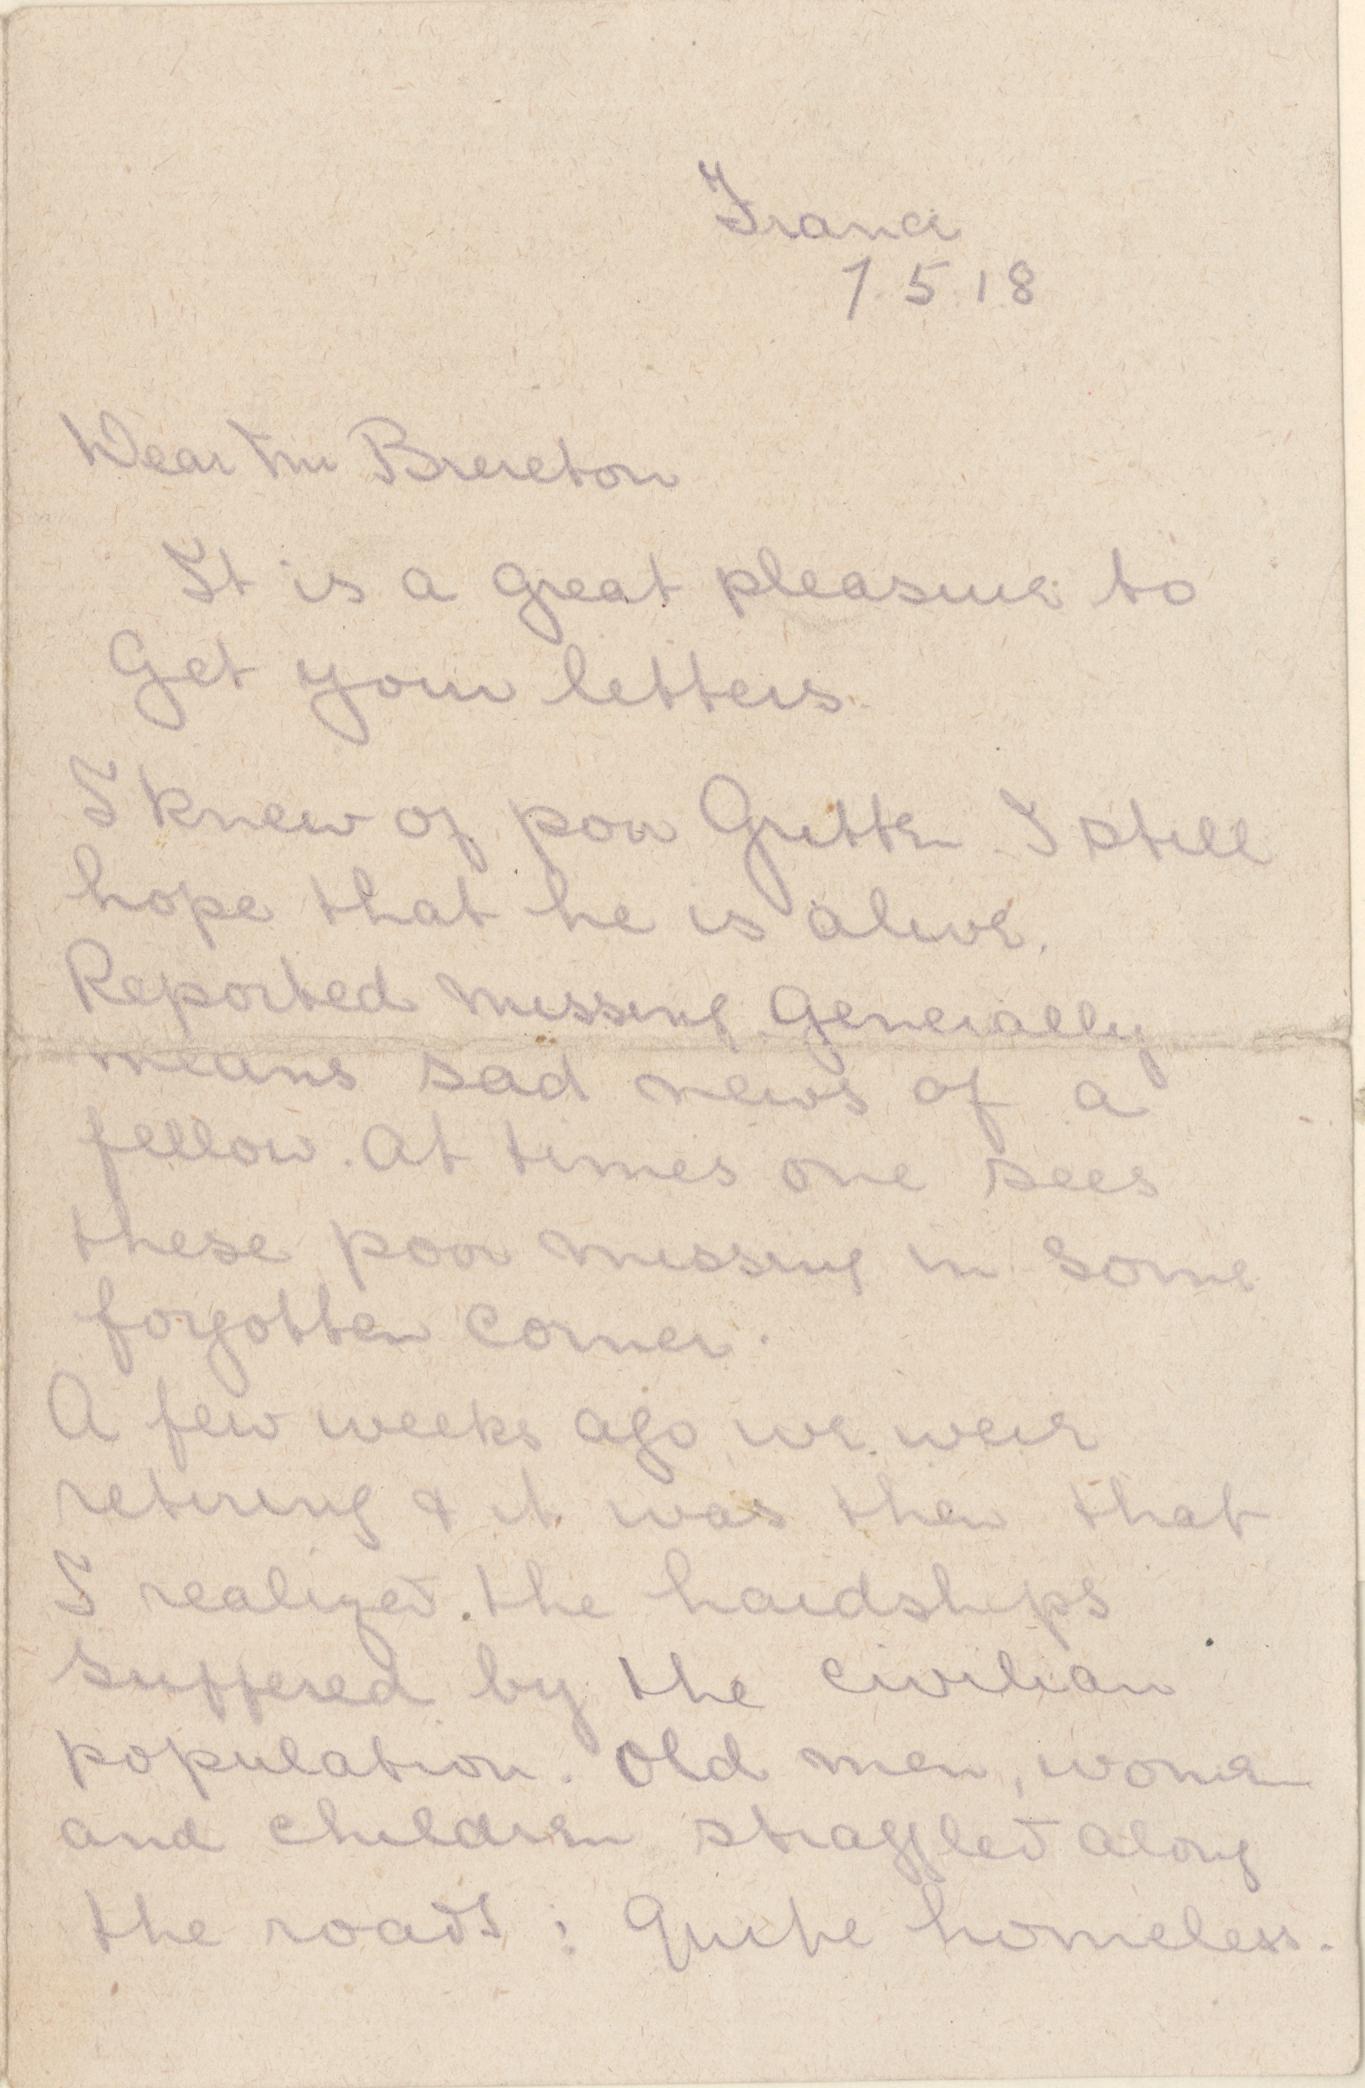 France
7.5.18
Dear Mr Brereton
It is a great pleasure to
Get your letters.
I knew of poor Gritten. I still
hope that he is alive.
Reported missing generally
means sad news of a
fellow. At times one sees
these poor missing in some
forgotten corner.
A few weeks ago we were
retiring & it was then that
I realized the hardships
suffered by the civilian
population. Old men, women
and children straggled along
the roads: Quite homeless.